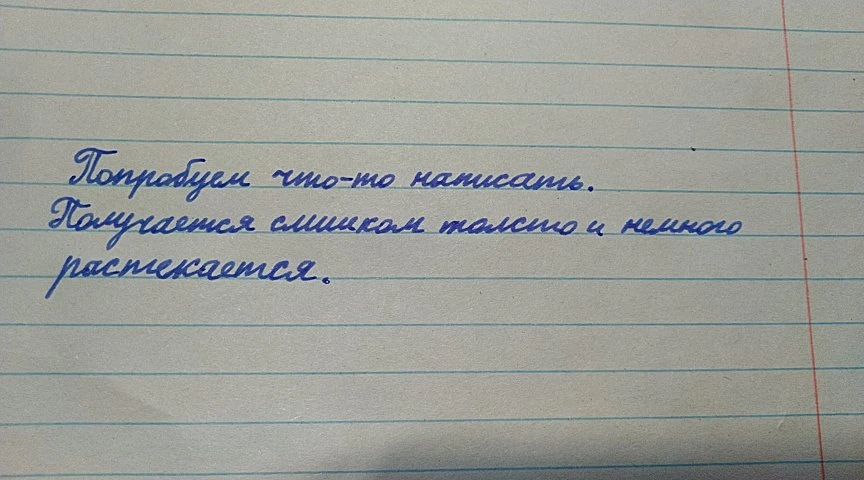 Попробуем что-то написать.
Получается слишком толсто и немного
растекается.